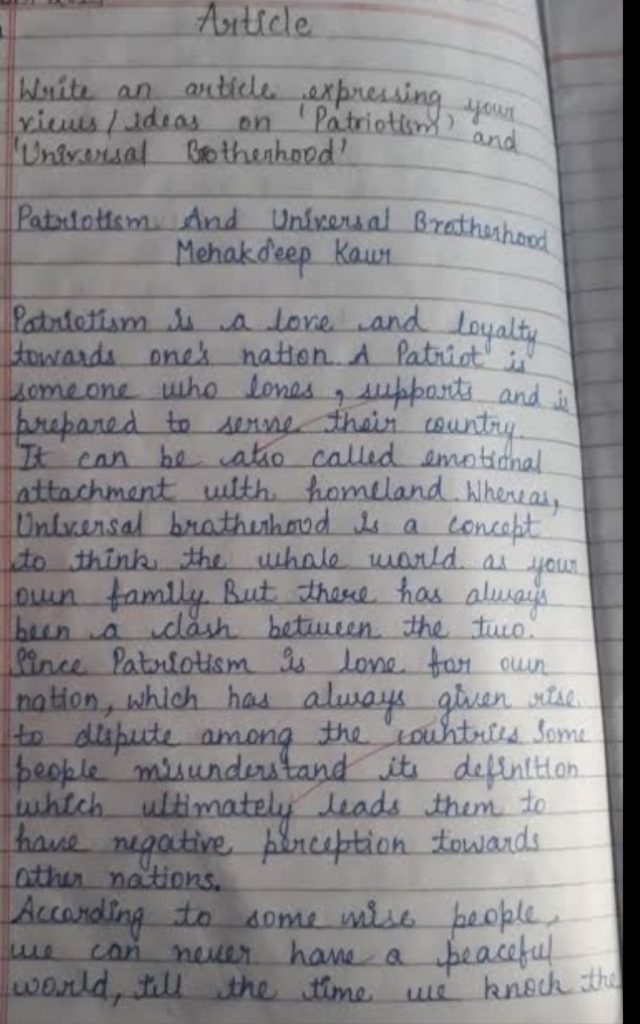 Article
Write an article expressing your
views/ideas on 'Patriotism' and
'Universal Brotherhood'
Patriotism And Universal Brotherhood
Mehakdeep Kaur
Patriotism is a love and loyalty
towards one's nation. A Patriot is
someone who loves, supports and is
prepared to serve their country.
It can be also called emotional
attachment with homeland. Whereas,
Universal brotherhood is a concept
to think the whole world as your
own family. But there has always
been a clash between the two.
Since Patriotism is love for own
nation, which has always given rise
to dispute among the countries. Some
people misunderstand its definition
which ultimately leads them to
have negative perception towards
other nations.
According to some wise people,
we can never have a peaceful
world, till the time we knock the